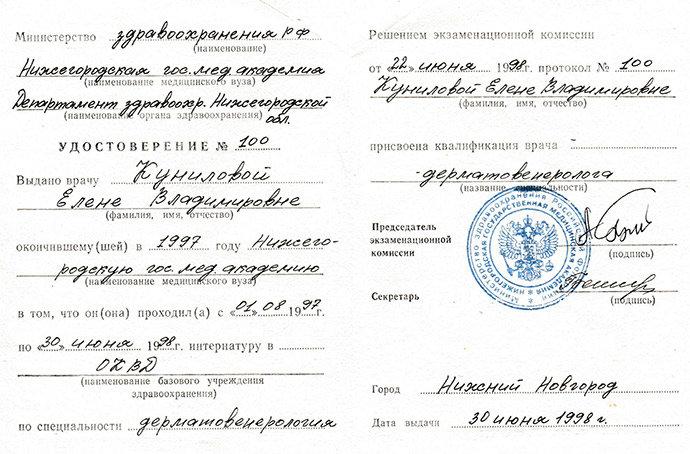 Министерство здравоохранения РФ
(наименование)
Нижегородская гос. мед академия
(наименование медицинского вуза)
Департамент здравоохр. Нижегородской
обл.
(наименование органа здравоохранения)
УДОСТОВЕРЕНИЕ № 100
Выдано врачу Куниловой
Елене Владимировне
(фамилия, имя, отчество)
окончившему(шей) в 1997 году Нижего-
родскую гос. мед. академию
(наименование медицинского вуза)
в том, что он(она) проходил(а) с «01» 08 1997г.
по «30» июня 1998г. интернатуру в
ОКВД
(наименование базового учреждения
здравоохранения)
по специальности дерматовенерология
Решением экзаменационной комиссии
от «22» июня 1998г. протокол № 100
Куниловой Елене Владимировне
(фамилия, имя, отчество)
присвоена квалификация врача
-дерматовенеролога
(название специальности)
Председатель
экзаменационной
комиссии
(подпись)
Секретарь
(подпись)
Город Нижний Новгород
Дата выдачи 30 июня 1998 г.